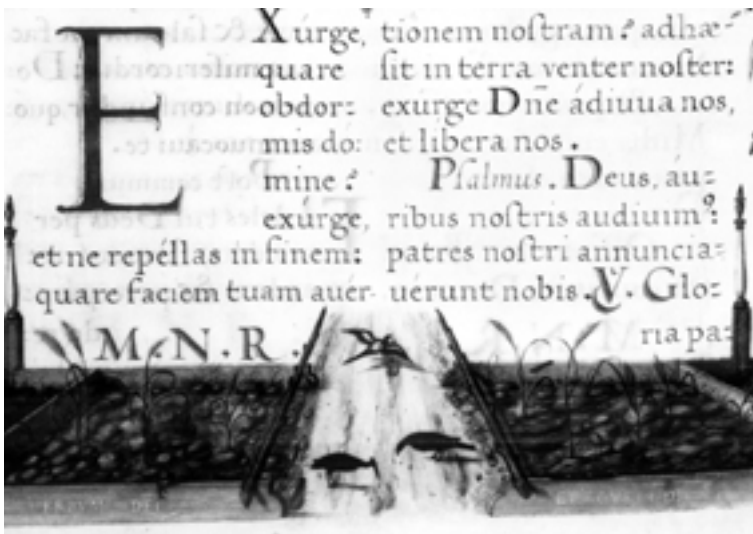 EXurge,
quare
obdor:
mis do:
mine?
exurge,
et ne repéllas in finem:
quare faciem tuam auér
M.N.R.
tionem noſtram? adhæ-
ſit in terra venter noſter:
exurge Dn̄e ádiuua nos,
et libera nos.
Pſalmus. Deus, áu:
ribus noſtris audiuim⁹:
patres noſtri annuncia:
uérunt nobis. V. Glo:
ria pa:
VERBVM DEI